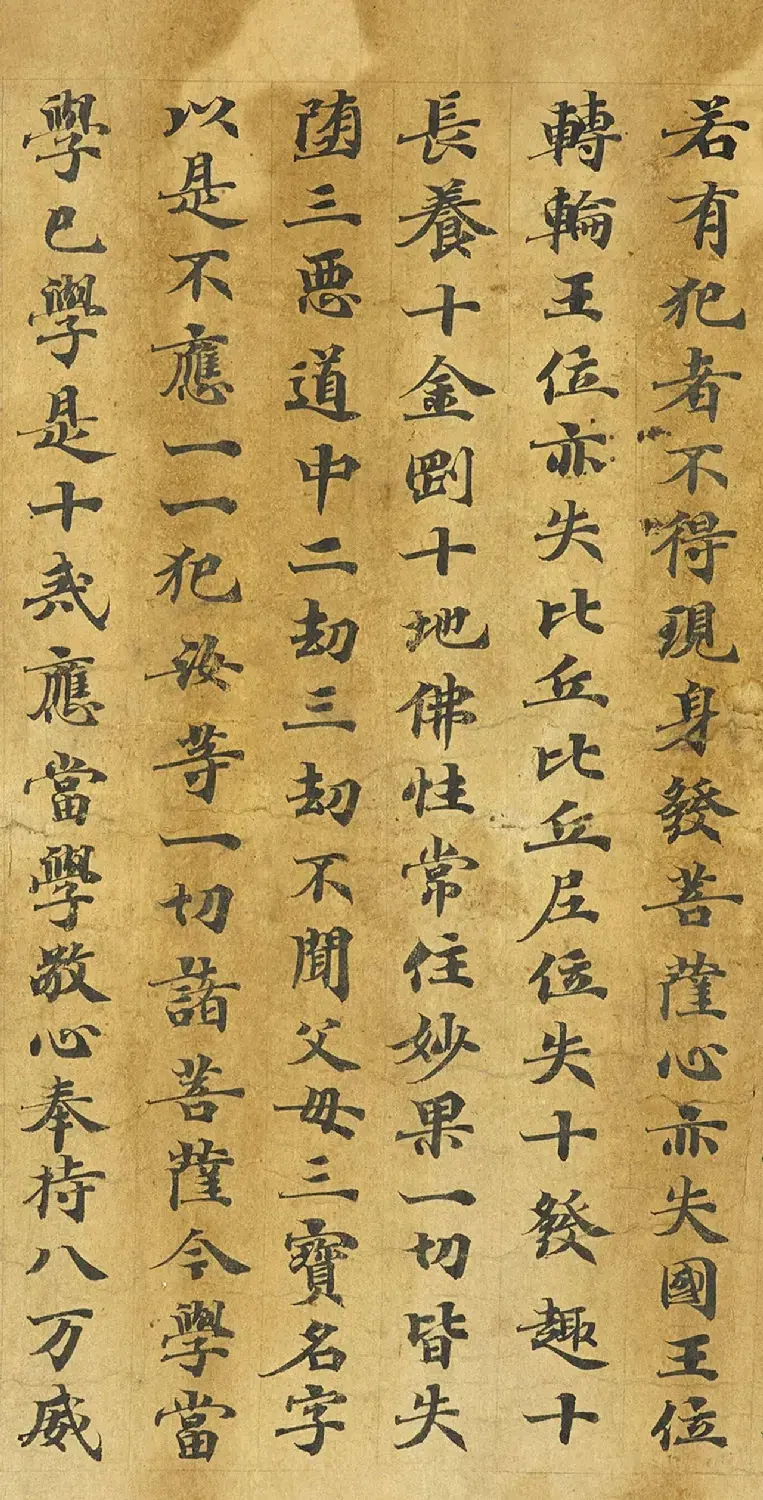 若有犯者不得現身發菩薩心亦失國王位
轉輪王位亦失比丘比丘尼位失十發趣十
長養十金剛十地佛性常住妙果一切皆失
堕三悪道中二劫三劫不聞父母三寶名字
以是不應一一犯汝等一切諸菩薩今學當
學已學是十戒應當學敬心奉持八万威